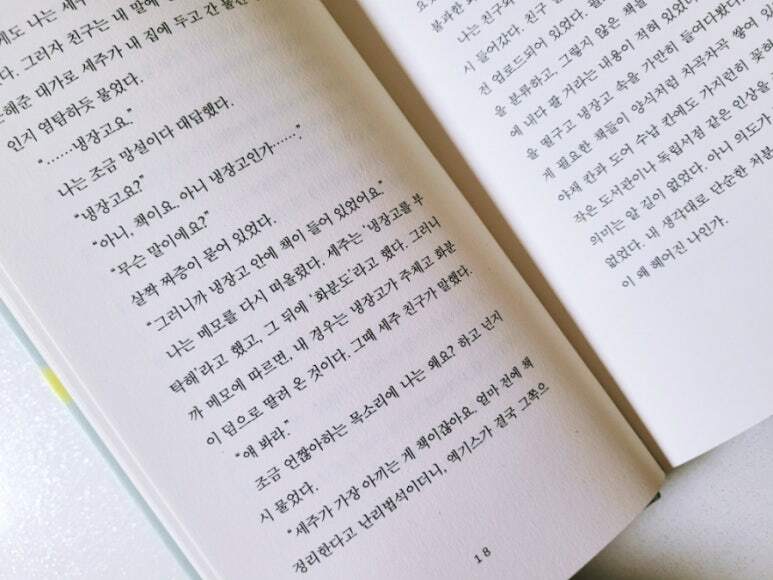 게도 나는 세주
다. 그러자 친구는 내 말에
해준 대가로 세주가 내 집에 두고 간 물건
인지 염탐하듯 물었다.
“……냉장고요.”
나는 조금 망설이다 대답했다.
“냉장고요?”
“아니, 책이요. 아니 냉장고인가…….”
“무슨 말이에요?”
살짝 짜증이 묻어 있었다.
“그러니까 냉장고 안에 책이 들어 있었어요.”
나는 메모를 다시 떠올렸다. 세주는 ‘냉장고를 부
탁해’라고 했고, 그 뒤에 ‘화분도’라고 했다. 그러니
까 메모에 따르면, 내 경우는 냉장고가 주체고 화분
이 덤으로 딸려 온 것이다. 그때 세주 친구가 말했다.
“얘 봐라.”
조금 언짢아하는 목소리에 나는 왜요? 하고 넌지
시 물었다.
“세주가 가장 아끼는 게 책이잖아요. 얼마 전에 책
정리한다고 난리법석이더니, 엑기스가 결국 그쪽으
18
불과한
나는 친구와
시 들어갔다. 친구
전 업로드되어 있었다.
을 분류하고, 그렇지 않은 책들
에 내다 팔 거라는 내용이 적혀 있었다.
을 떨구고 냉장고 속을 가만히 들여다봤다.
게 필요한 책들이 양식처럼 차곡차곡 쌓여 있
야채 칸과 도어 수납 칸에도 가지런히 꽂혀
작은 도서관이나 독립서점 같은 인상을
의미는 알 길이 없었다. 아니 의도가
없었다. 내 생각대로 단순한 처분
이 왜 헤어진 나인가.